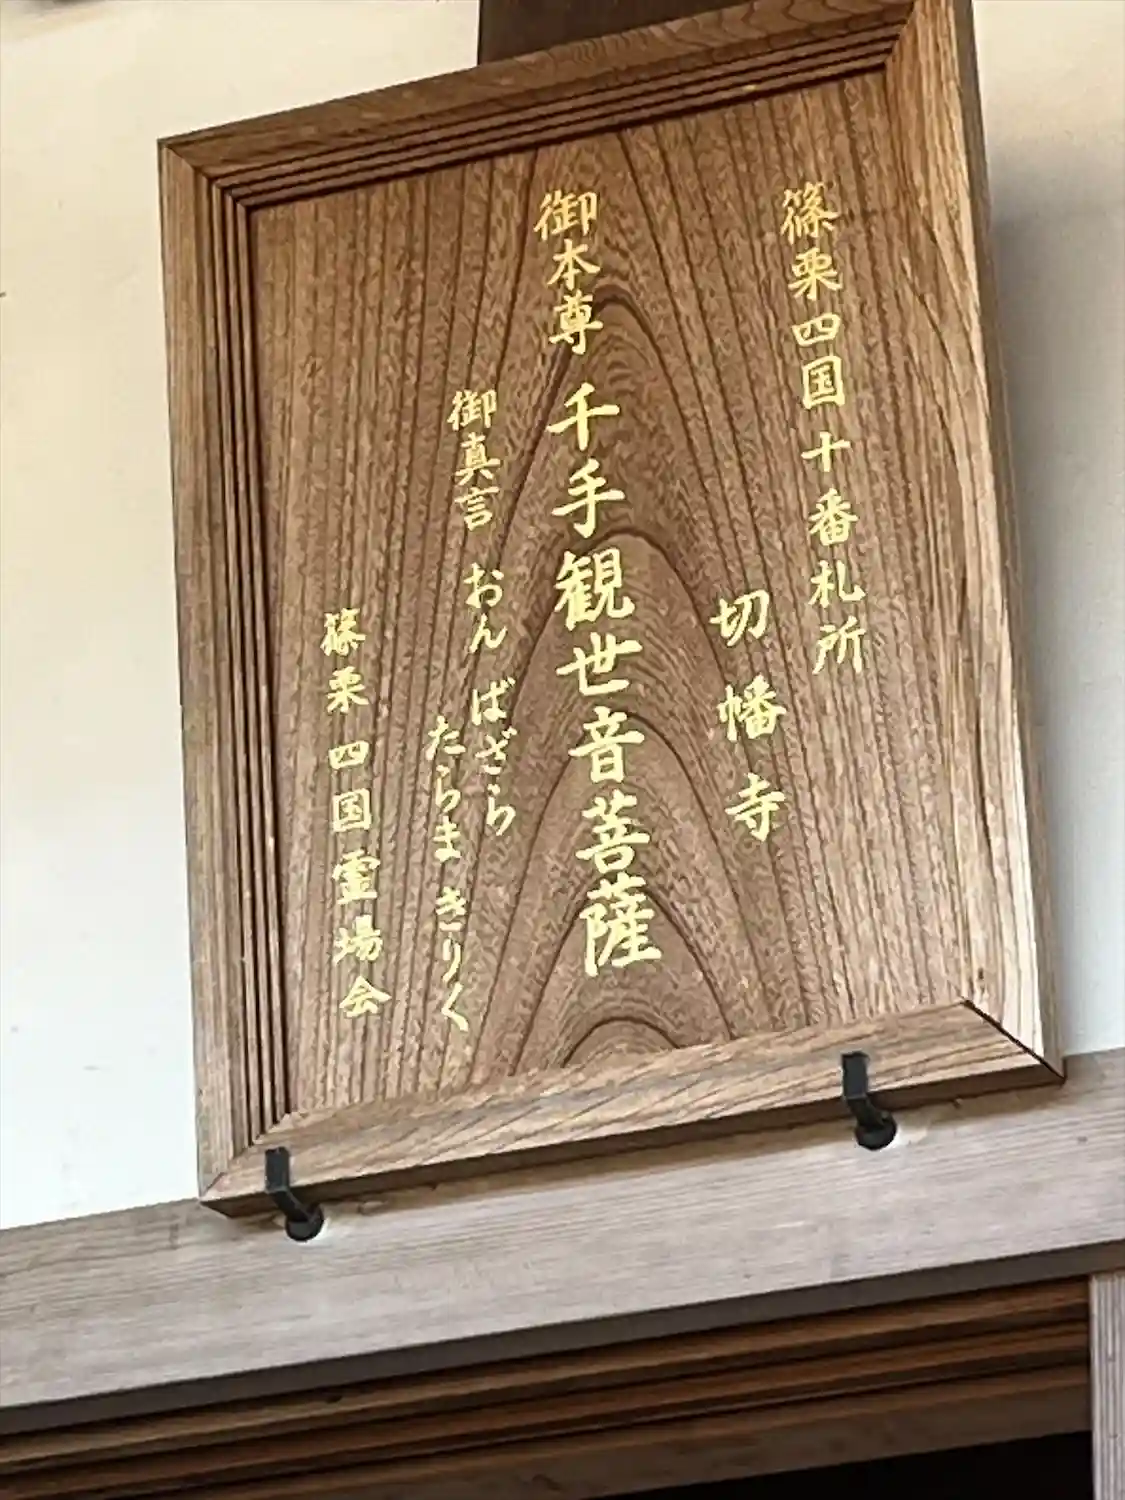 篠栗四国十番札所
切幡寺
御本尊 千手観世音菩薩
御真言 おん ばざら
たらま きりく
篠栗四国霊場会